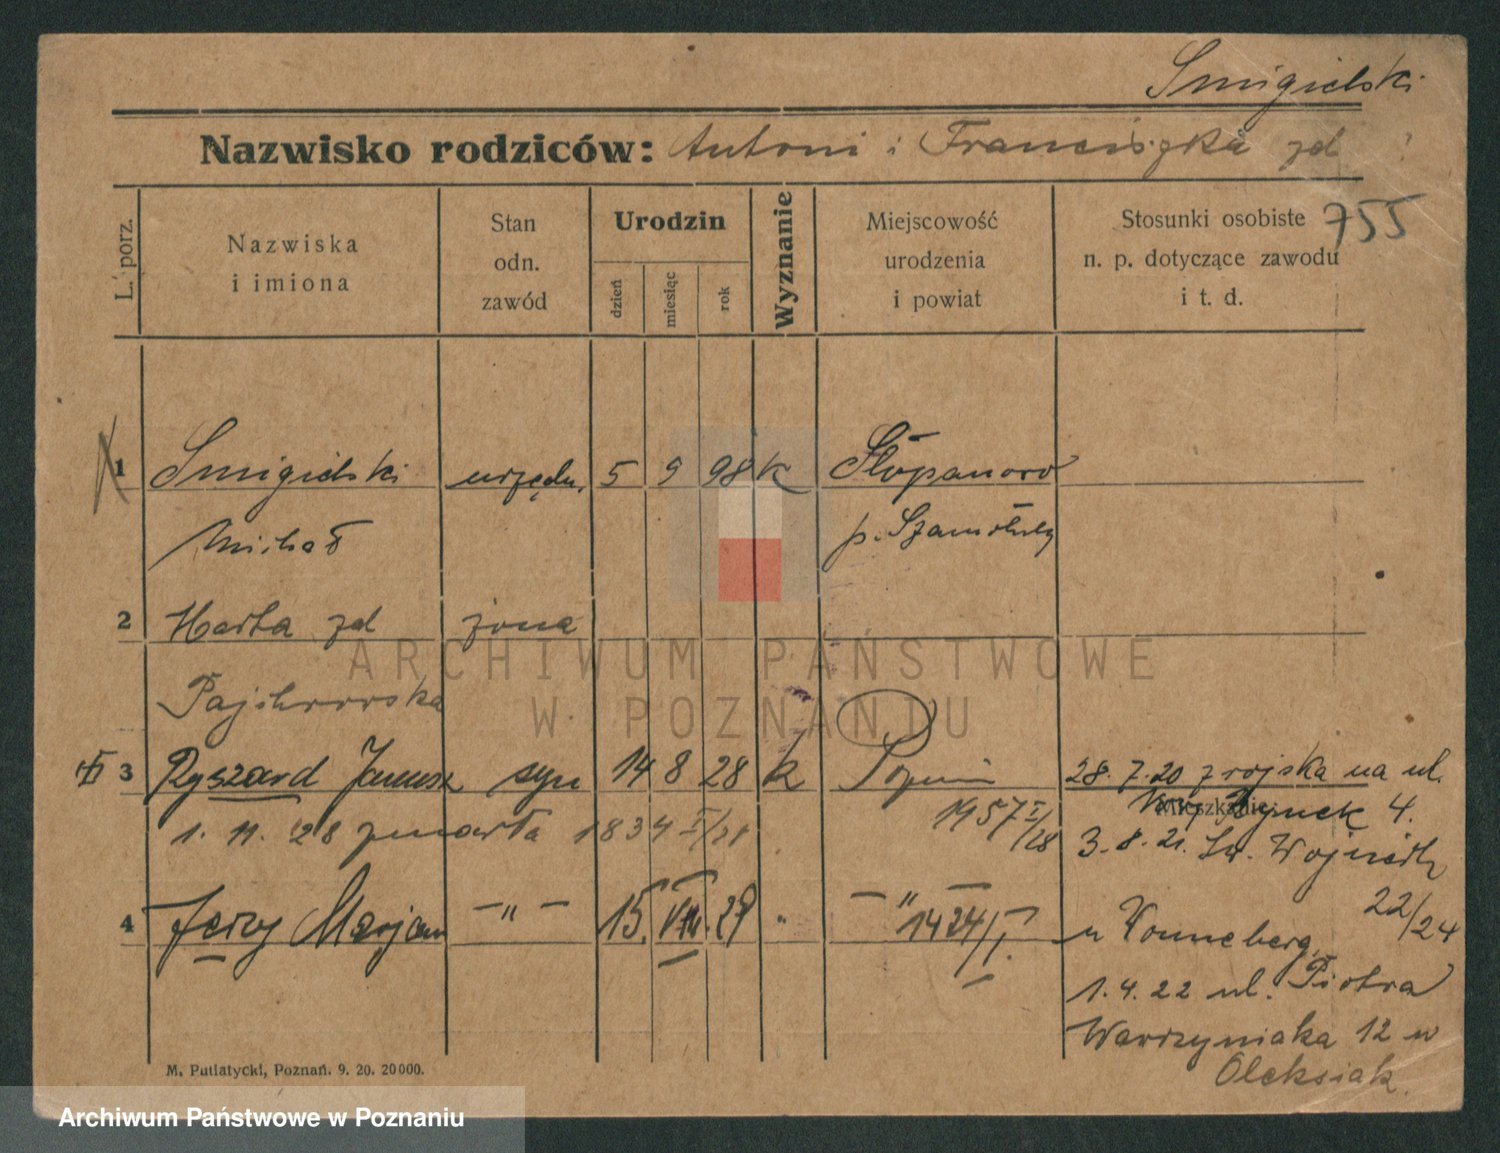 Smigielski
Nazwisko rodziców: Antoni i Franciszka zd ?
755
L. porz.
Nazwiska
i imiona
Stan
odn.
zawód
Urodzin
dzień
miesiąc
rok
Wyznanie
Miejscowość
urodzenia
i powiat
Stosunki osobiste
n. p. dotyczące zawodu
i t. d.
1 Smigielski urzędn. 5 9 98 k Słopanowo
Michał p. Szamotuły
2 Marta zd żona
ARCHIWUM PAŃSTWOWE
W POZNANIU
3 Ryszard Janusz syn 14 8 28 k Poznań 28. 7. 20 z wojska na ul.
Mieszkanie:
Rynek 4.
1. 11. 28 zmarła 1834 I/28 1957 I/28
3. 8. 21. Św. Wojciech
22/24
4 Jerzy Marjan -"- 15. VIII. 29 " -"- 1424/I.
u Vonneberg
1. 4. 22 ul. Piotra
Wawrzyniaka 12 u
Oleksiak.
M. Putiatycki, Poznań. 9. 20. 20000.
Archiwum Państwowe w Poznaniu